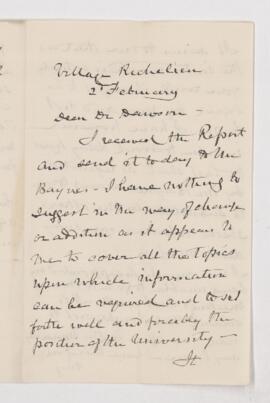 Village Richelieu
2d February
Dear Dr Dawson -
I received the Report
and send it to day to Mr
Baynes - I have nothing to
suggest in the way of change
or addition as it appears to
me to cover all the topics
upon which information
can be required and to set
forth well and forcibly the
position of the University -
It